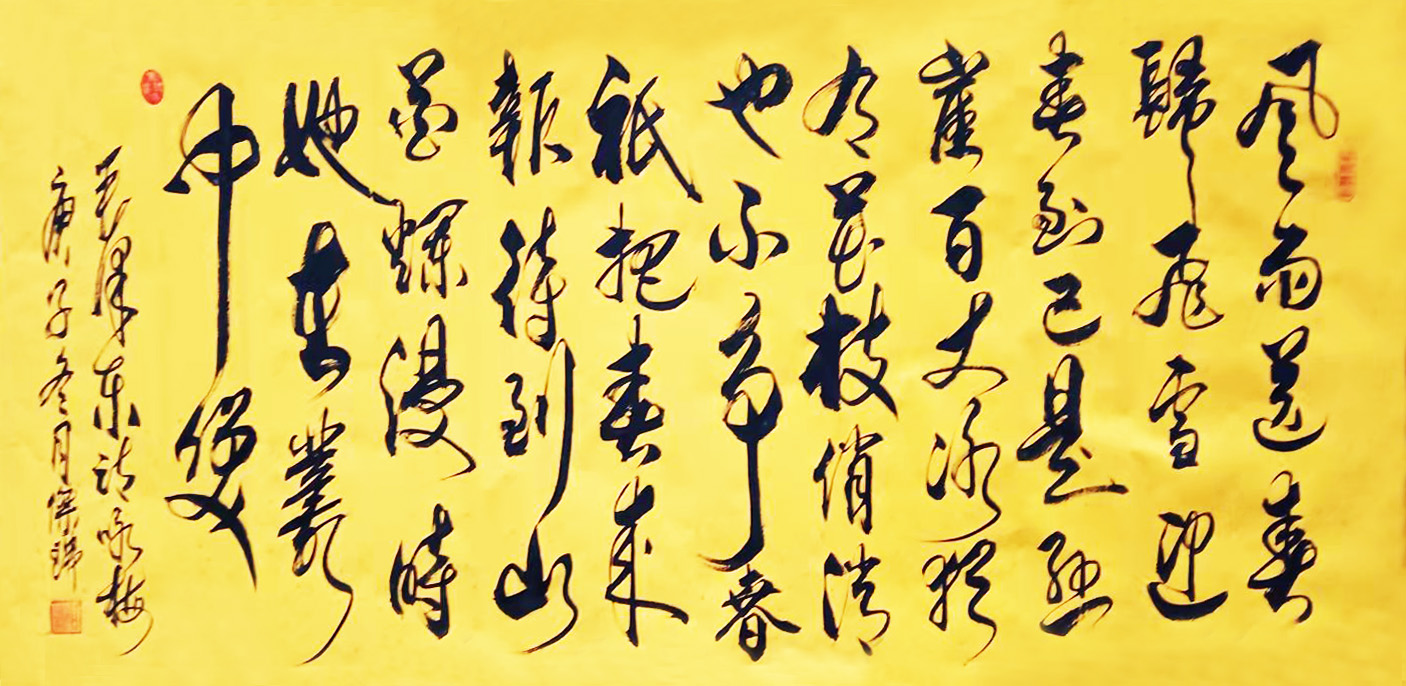 风雨送春
歸飛雪迎
春到已是悬
崖百丈冰猶
有花枝俏俏
也不争春
祇把春来
報待到山
花爛漫時
她在叢
中笑
毛泽东詩咏梅
庚子冬月